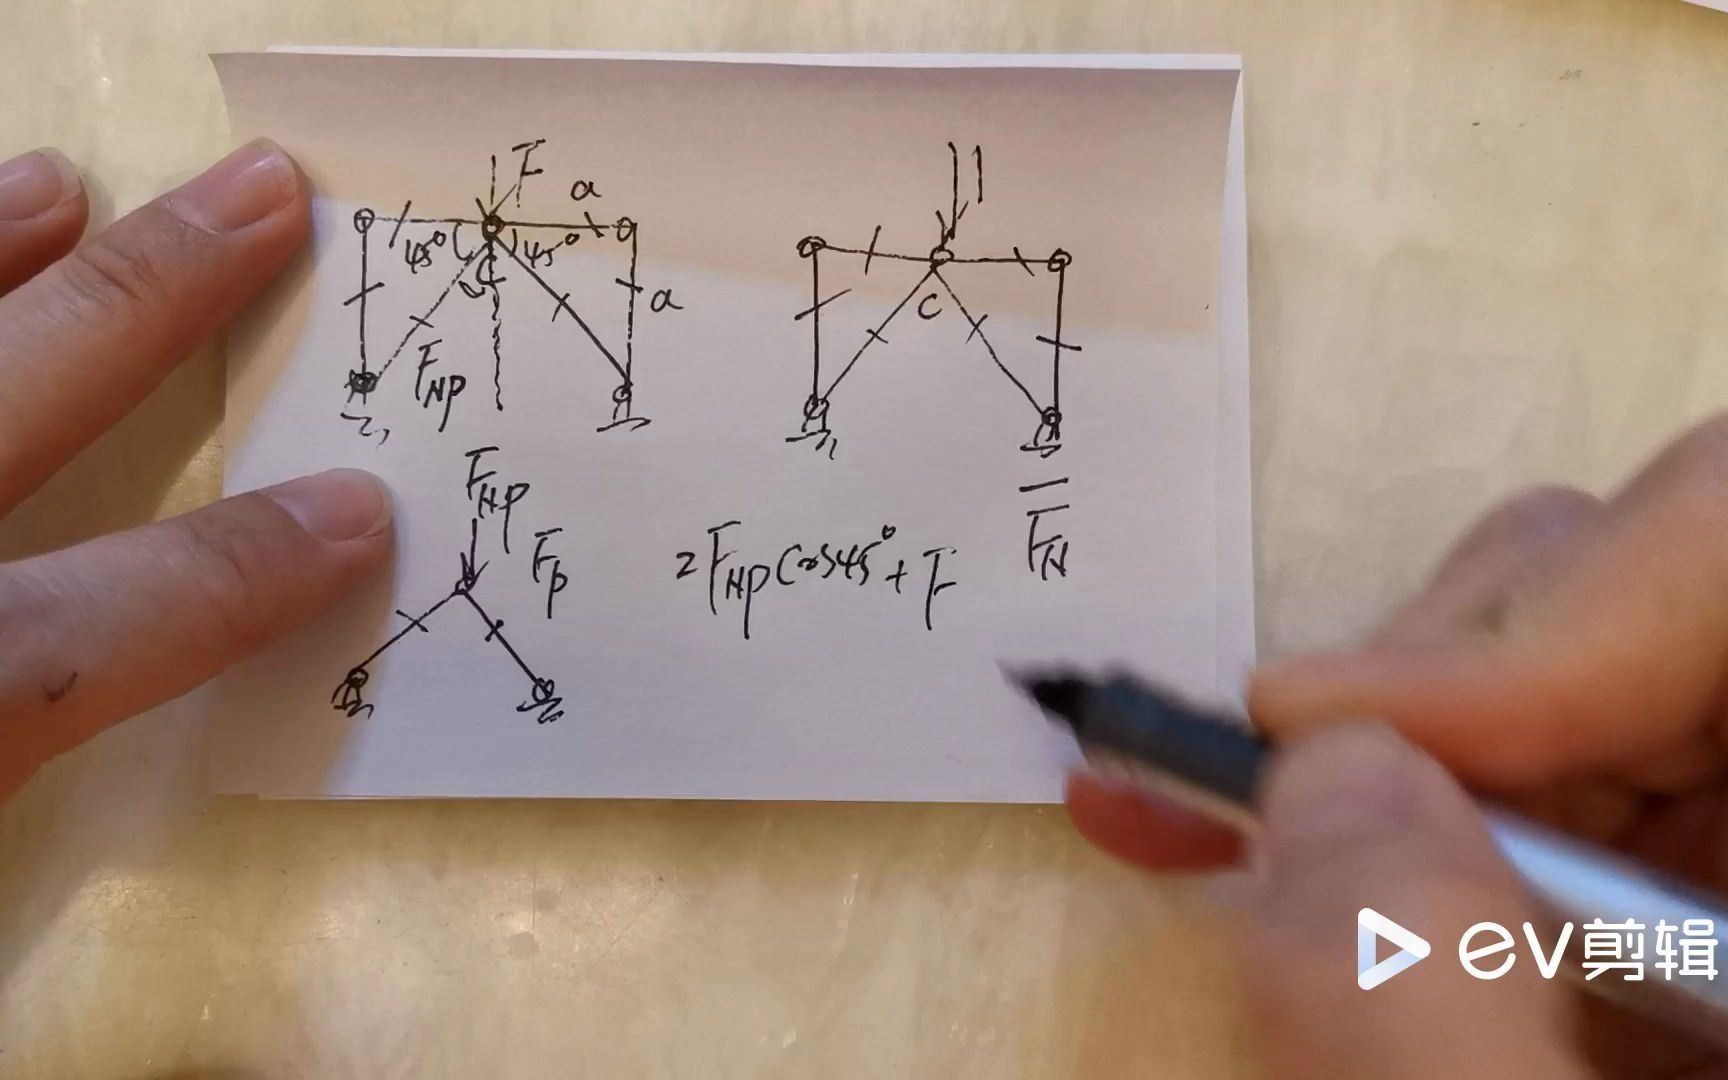 F
a
45°
45°
C
a
F_NP
1
C
F_NP
F_P
F̄_N
2F_NP cos45° + F
ev剪辑